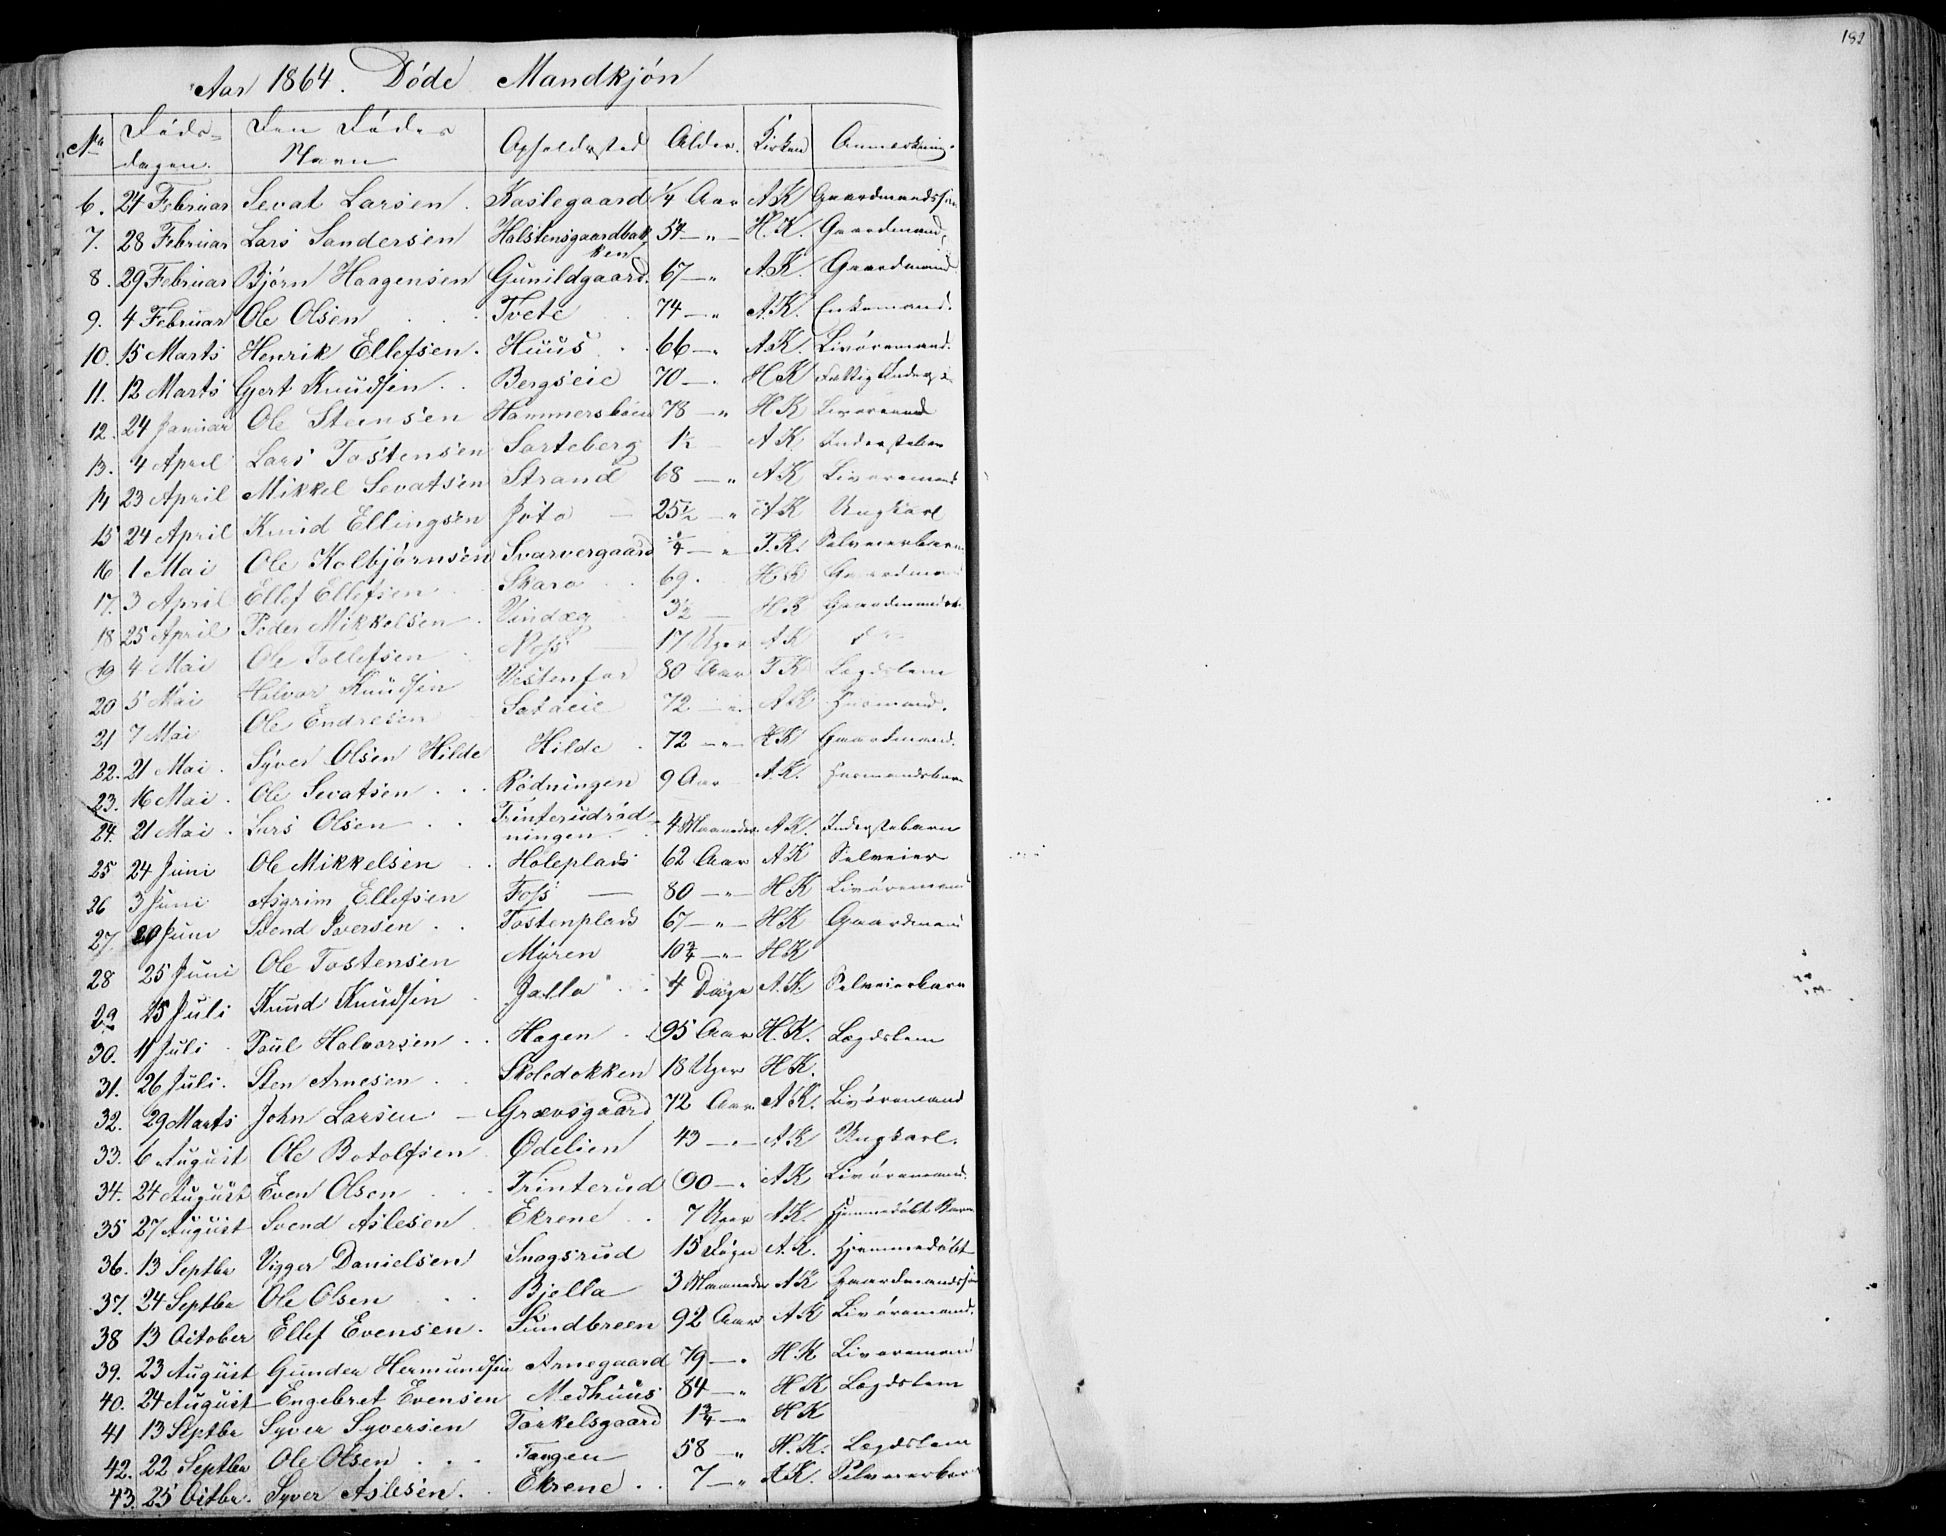 182
Aar 1864. Døde Mandkjøn
No Døds-dagen. Den Dødes Navn Opholdssted Alder. Kirken Anmerkning.
6. 24 Februar Sevat Larsen. Kaslegaard 1/4 Aar A K Gaardmandssøn
7. 28 Februar Lars Sandersen Halstensgaardbakken 54 —"— H. K. Gaardmand.
8. 29 Februar Bjørn Haagensen Gunildgaard. 67 —" A. K. Gaardmand.
9. 4 Februar Ole Olsen Tvete 74 —" A. K. Enkemand.
10. 15 Marts Henrik Ellefsen. Huus 66 —. A. K. Livøremand.
11. 12 Marts Gjert Knudsen Bergseie 70 —. H K Fattig
12. 24 Januar Ole Steensen Hammersbøen 78 —" H K Livøremand
13. 4 April Lars Tostensen Sarteberg 1½ — A K Inderstebarn
14 23 April Mikkel Sevatsen Strand 68 —" A K Livøremand
15 24 April Knud Ellingsen 25½ —" A K Ungkarl
16 1 Mai Ole Kolbjørnsen Svarvergaard ¼ —" T. K. Selveierbarn
17. 3 April Ellef Ellefsen Skara 69. H K Gaardmand
18 25 April Peder Mikkelsen Vindeg 3½ — H K
19 4 Mai Ole Tollefsen Næss — 17 Uger A K
20 5 Mai Halvor Knudsen Vestenfor 80 Aar T K Lægdslem
21 7 Mai Ole Endresen 72 —" A K Husmand.
22. 21 Mai. Syver Olsen Hilde Hilde 72 —"— H K Gaardmand.
23. 16 Mai. Ole Sevatsen Rødningen 9 Aar A. K. Husmandsbarn
24. 21 Mai. Lars Olsen Trinterudrødningen 4 Maaneder A K. Inderstebarn
25 24 Juni Ole Mikkelsen Holeplads 62 Aar A K Selveier
26 3 Juni Asgrim Ellefsen Foss — 80 —"— H K Livøremand
27. 20 Juni Svend Iversen Tostenplads 67 —"— H K Gaardmand
28 25 Juni Ole Tostensen Myren 10¾ —"— H K
29 15 Juli Knud Knudsen Jalla 4 Dage A. K. Selveierbarn
30. 11 Juli Poul Halvorsen Hagen 95 Aar H. K. Lægdslem
31. 26 Juli. Sten Arnesen Skoledokken 18 Uger H K.
32. 29 Marts John Larsen — Grævsgaard 72 Aar A K. Livøremand
33. 6 August Ole Botolfsen Ødelien 43 —"— A K Ungkarl.
34. 24 August Even Olsen Trinterud 90 —" A K Livøremand.
35 27 August Svend Aslesen Ekrene 7 Uger A K. Hjemmedøbt Barn
36. 13 Septbr Vigger Danielsen Snogsrud 15 Dage A. K. Hjemmedøbt
37. 24 Septbr Ole Olsen Bjella 3 Maaneder A K Gaardmandssøn
38 13 October Ellef Evensen. Sundbreen 92 Aar A K Livøremand.
39. 23 August Gunder Hermundsen Arnegaard 79 —" H. K Livøremand
40. 24 August Engebret Evensen Medhuus 84 —" H K Lægdslem
41 13 Septbr Syver Syversen Torkelsgaard 1¾ —" H K
42. 22 Septbr Ole Olsen Tangen 58 —" H. K. Lægdslem
43. 25 Octbr. Syver Aslesen. Ekrene 7 —" A K. Selveierbarn